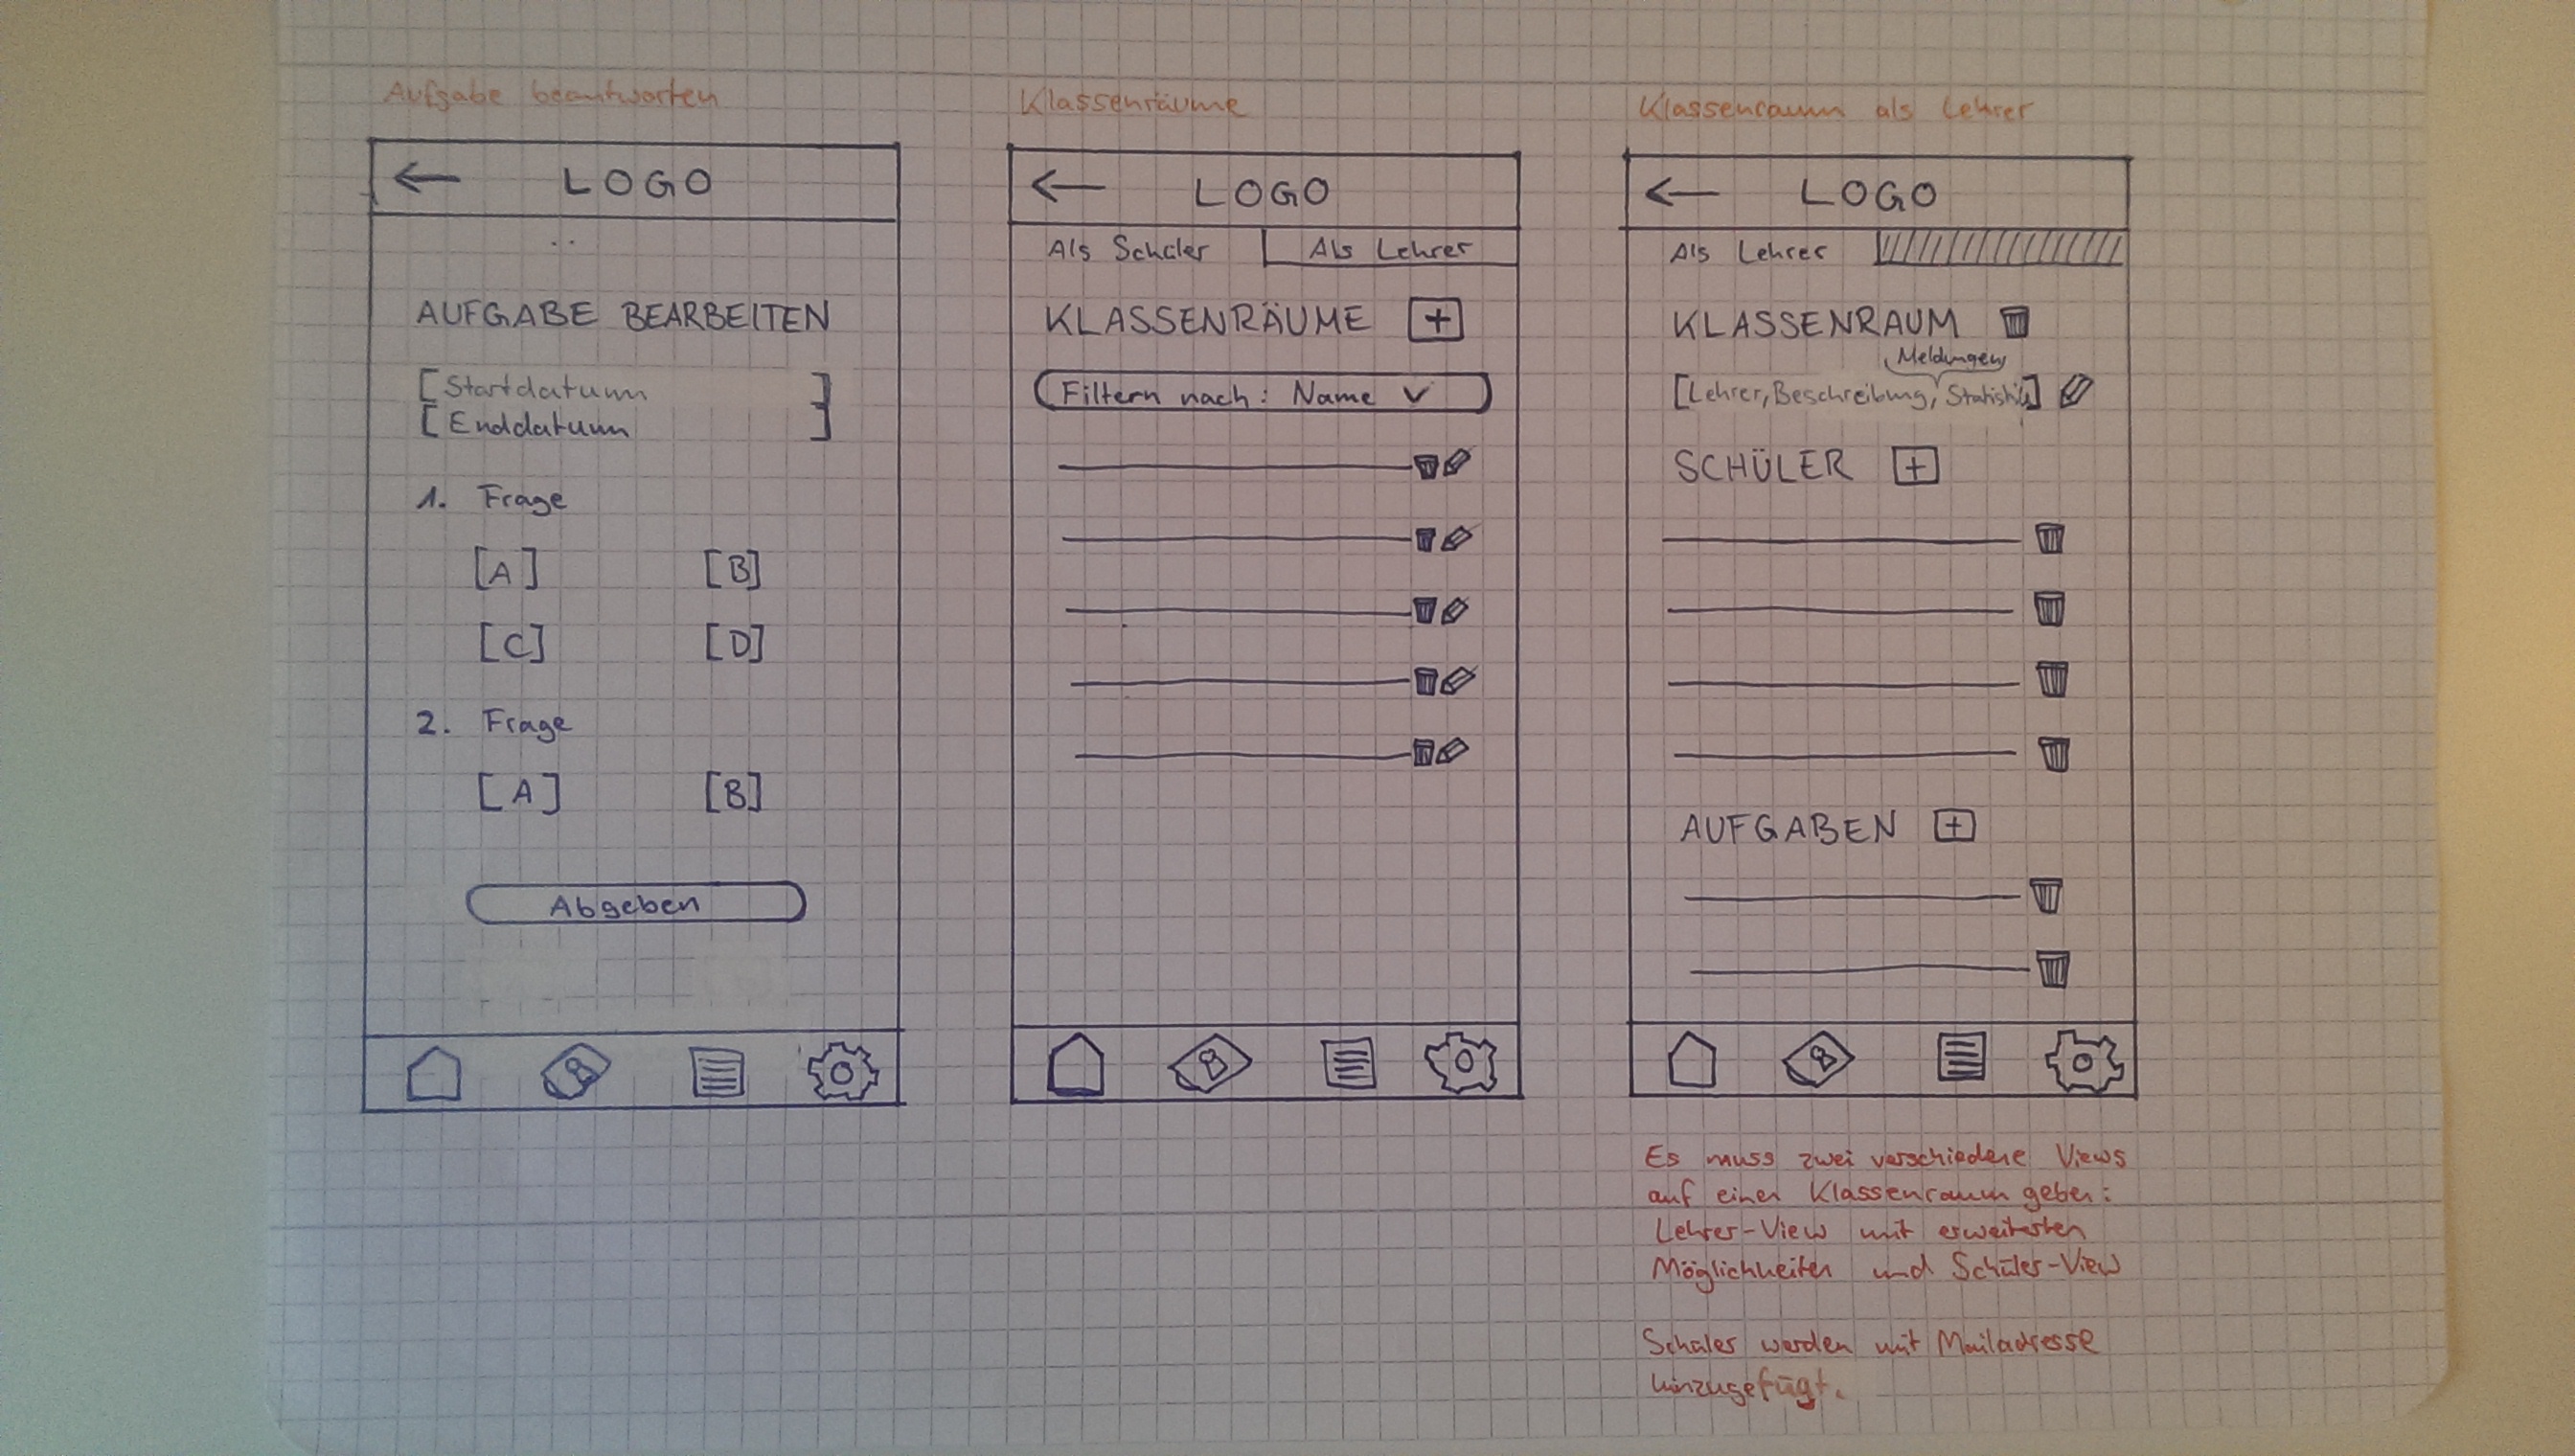 Aufgabe beantworten
← LOGO
AUFGABE BEARBEITEN
[Startdatum ]
[Enddatum ]
1. Frage
[A] [B]
[C] [D]
2. Frage
[A] [B]
Abgeben
Klassenräume
← LOGO
Als Schüler Als Lehrer
KLASSENRÄUME +
Filtern nach: Name
Klassenraum als Lehrer
← LOGO
Als Lehrer
KLASSENRAUM
Meldungen
[Lehrer, Beschreibung, Statistik]
SCHÜLER +
AUFGABEN +
Es muss zwei verschiedene Views
auf einen Klassenraum geben:
Lehrer-View mit erweiterten
Möglichkeiten und Schüler-View
Schüler werden mit Mailadresse
hinzugefügt.